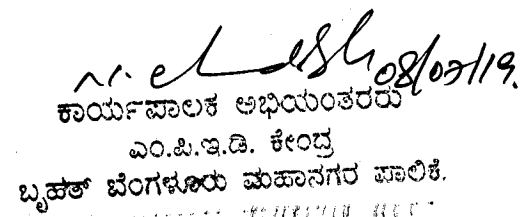 08/07/19.
ಕಾರ್ಯಪಾಲಕ ಅಭಿಯಂತರರು
ಎಂ.ಪಿ.ಇ.ಡಿ. ಕೇಂದ್ರ
ಬೃಹತ್ ಬೆಂಗಳೂರು ಮಹಾನಗರ ಪಾಲಿಕೆ.